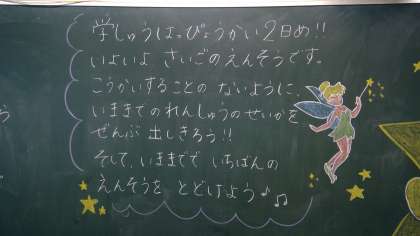 学しゅうはっぴょうかい2日め!!
いよいよ さいごのえんそうです。
こうかいすることの ないように、
いままでのれんしゅうのせいかを
ぜんぶ 出しきろう!!
そして、いままでで いちばんの
えんそうを とどけよう♪♫